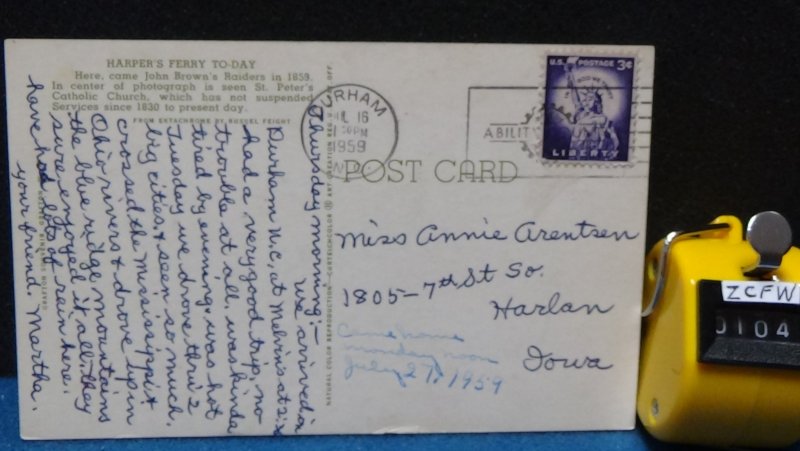 HARPER'S FERRY TO-DAY
Here, came John Brown's Raiders in 1859.
In center of photograph is seen St. Peter's
Catholic Church, which has not suspended
Services since 1830 to present day.
FROM EKTACHROME BY RUSSEL FEIGHT
Thursday morning:-
we arrived in
Durham N.C. at Melvin's at 2:
had a very good trip, no
trouble at all. was kinda
tired by evening. was hot
Tuesday we drove thru 2
big cities & seen so much.
crossed the Mississippi &
Ohio rivers & drove up in
the blue ridge mountains
sure enjoyed it all. they
have had lots of rain here.
your friend. Martha.
NATURAL COLOR REPRODUCTION
DURHAM
16
PM
1959
N.C.
ABILIT
U.S. POSTAGE 3¢
IN GOD WE TRUST
LIBERTY
POST CARD
Miss Annie Arentsen
1805-7th St So.
Harlan
Iowa
Came home
monday noon
July 27, 1959
ZCFW
0104